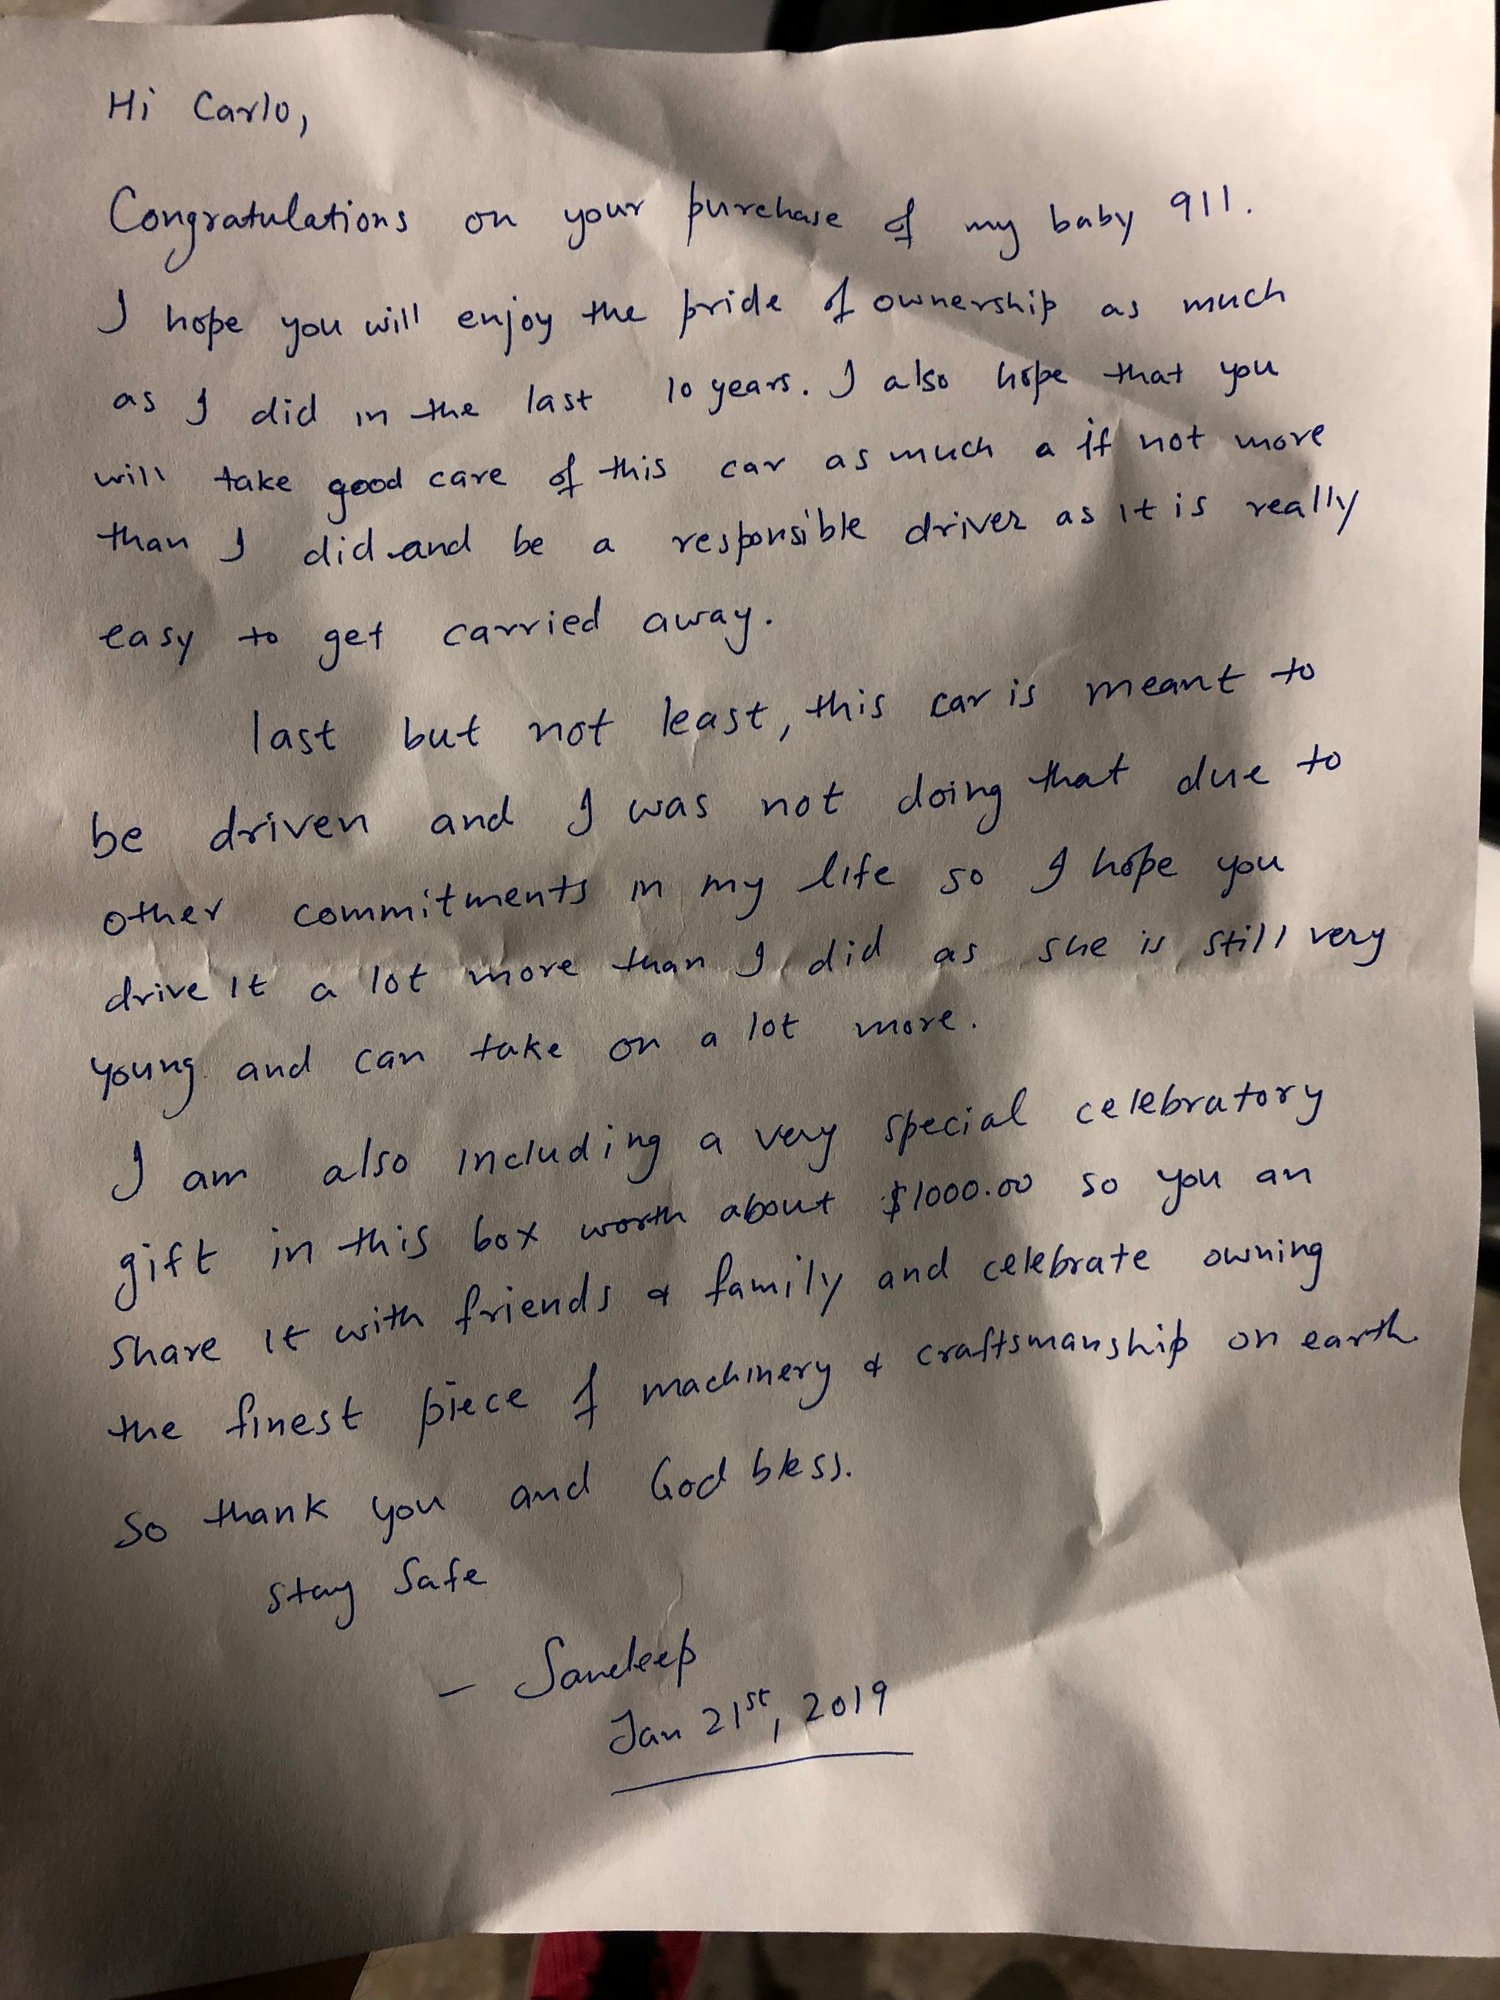 Hi Carlo,
Congratulations on your purchase of my baby 911.
I hope you will enjoy the pride of ownership as much
as I did in the last 10 years. I also hope that you
will take good care of this car as much a if not more
than I did and be a responsible driver as it is really
easy to get carried away.
last but not least, this car is meant to
be driven and I was not doing that due to
other commitments in my life so I hope you
drive it a lot more than I did as she is still very
young and can take on a lot more.
I am also including a very special celebratory
gift in this box worth about $1000.00 so you an
share it with friends & family and celebrate owning
the finest piece of machinery & craftsmanship on earth.
So thank you and God bless.
Stay Safe
- Sandeep
Jan 21st, 2019